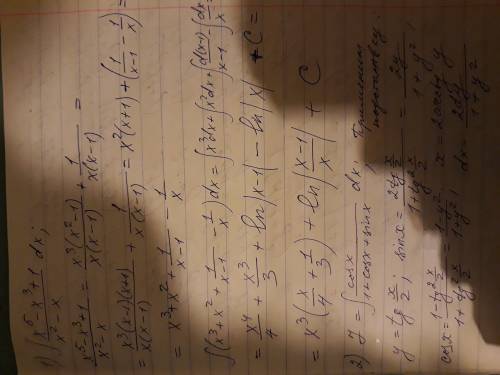 1) ∫ (x⁵ - x³ + 1)/(x² - x) dx;
(x⁵ - x³ + 1)/(x² - x) = x³(x² - 1)/(x(x-1)) + 1/(x(x-1)) =
= x³(x-1)(x+1)/(x(x-1)) + 1/(x(x-1)) = x²(x+1) + (1/(x-1) - 1/x) =
= x³ + x² + 1/(x-1) - 1/x
∫(x³ + x² + 1/(x-1) - 1/x) dx = ∫x³dx + ∫x²dx + ∫d(x-1)/(x-1) - ∫dx/x
= x⁴/4 + x³/3 + ln|x-1| - ln|x| + C =
= x³(x/4 + 1/3) + ln|(x-1)/x| + C
2) y = ∫ cosx/(1 + cosx + sinx) dx; Применим
подстановку
y = tg x/2; sinx = 2tg x/2 / (1 + tg² x/2) = 2y/(1 + y²);
cosx = (1 - tg² x/2)/(1 + tg² x/2) = (1 - y²)/(1 + y²); x = 2arctg y
dx = 2dy/(1 + y²)